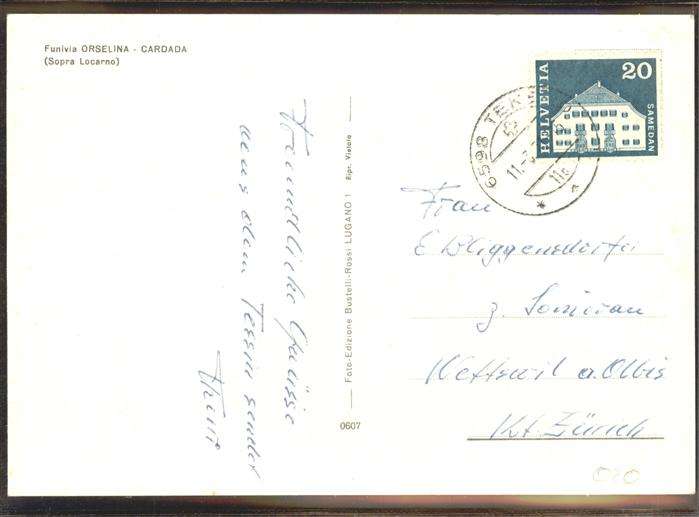 Funivia ORSELINA - CARDADA
(Sopra Locarno)
HELVETIA
20
SAMEDAN
6598 TEN
11.
11
Freundliche Grüsse
aus dem Tessin sendet
Foto-Edizione Bustelli-Rossi LUGANO 1 Ripr. Vietata
0607
Frau
z.
Wettswil a. Albis
Kt. Zürich
020